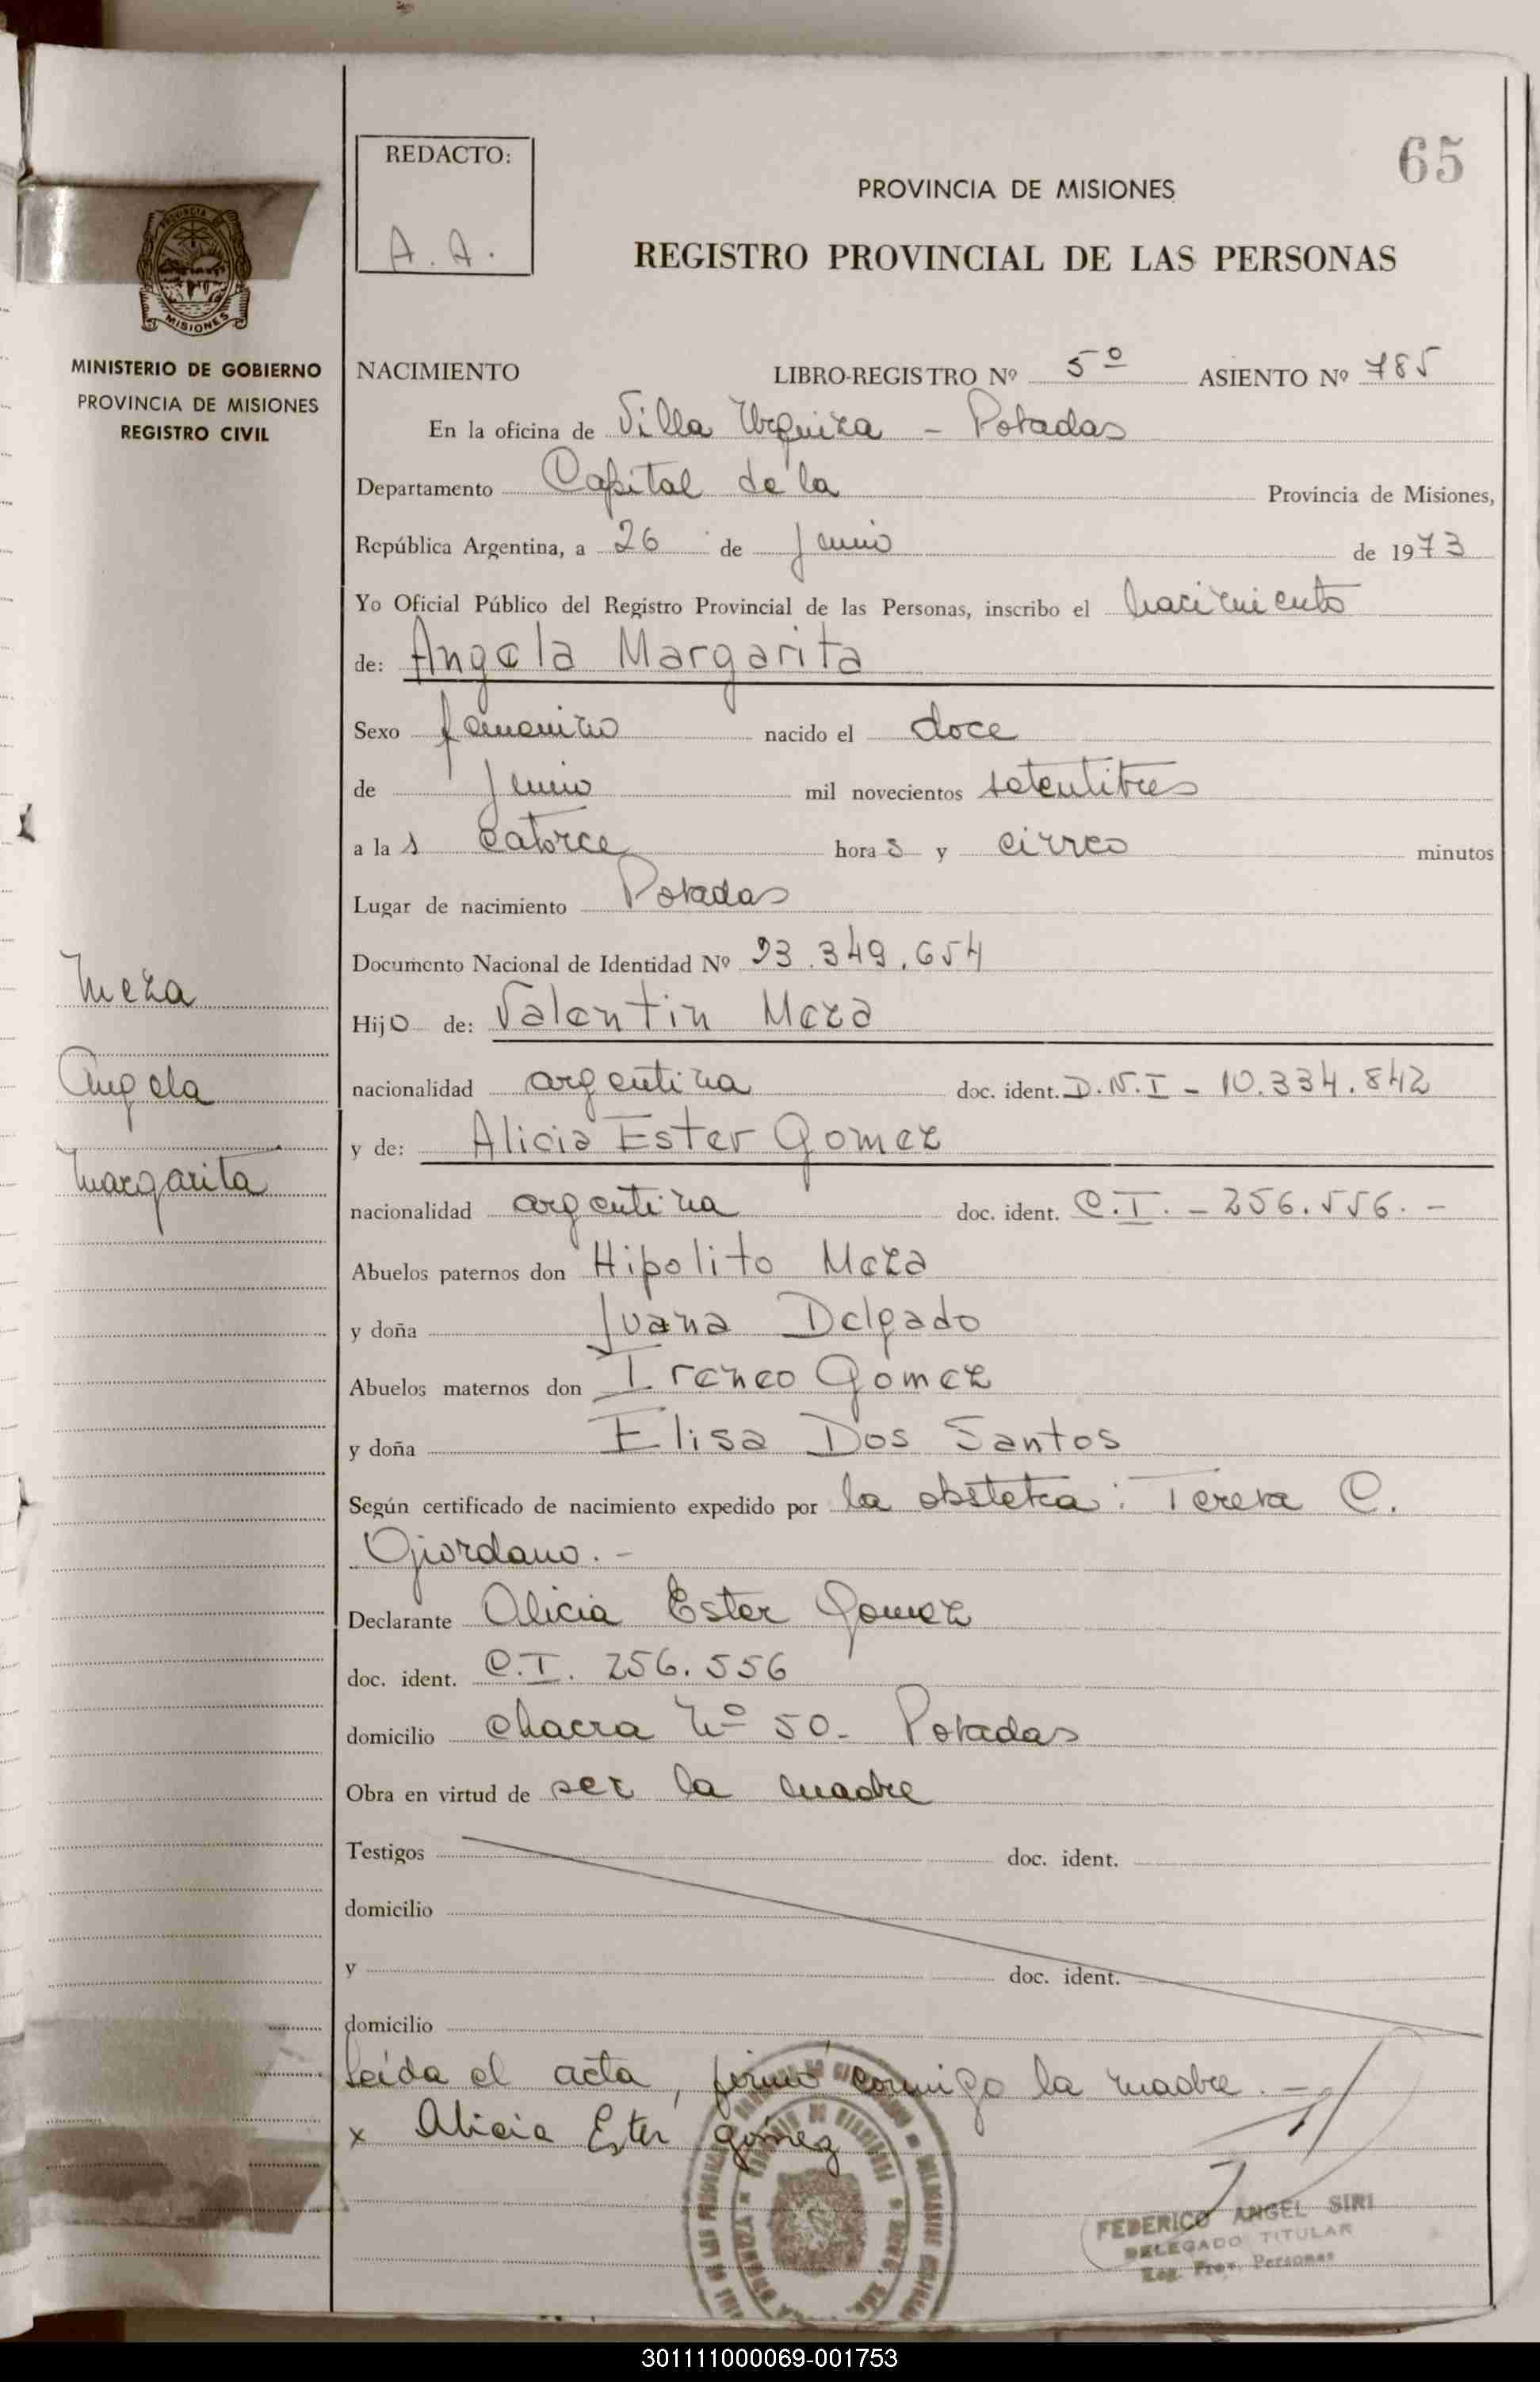 65
REDACTO:
A. A.
PROVINCIA DE MISIONES
REGISTRO PROVINCIAL DE LAS PERSONAS
MISIONES
MINISTERIO DE GOBIERNO
PROVINCIA DE MISIONES
REGISTRO CIVIL
NACIMIENTO LIBRO-REGISTRO Nº 5º ASIENTO Nº 785
En la oficina de Villa Urquiza - Posadas
Departamento Capital de la Provincia de Misiones,
República Argentina, a 26 de Junio de 1973
Yo Oficial Público del Registro Provincial de las Personas, inscribo el nacimiento
de: Angela Margarita
Sexo femenino nacido el doce
de Junio mil novecientos setentitres
a las catorce horas y cinco minutos
Lugar de nacimiento Posadas
Documento Nacional de Identidad Nº 23.349.654
Meza
Angela
Margarita
Hijo de: Valentin Meza
nacionalidad argentina doc. ident. D.N.I - 10.334.842
y de: Alicia Ester Gomez
nacionalidad argentina doc. ident. C.I. - 256.556. -
Abuelos paternos don Hipolito Meza
y doña Juana Delgado
Abuelos maternos don Ireneo Gomez
y doña Elisa Dos Santos
Según certificado de nacimiento expedido por la obstetra: Teresa C.
Giordano. -
Declarante Alicia Ester Gomez
doc. ident. C.I. 256.556
domicilio chacra Nº 50- Posadas
Obra en virtud de ser la madre
Testigos doc. ident.
domicilio
y doc. ident.
domicilio
Leida el acta, firmó conmigo la madre. -
x Alicia Ester gómez
FEDERICO ANGEL SIRI
DELEGADO TITULAR
Reg. Prov. Personas
301111000069-001753